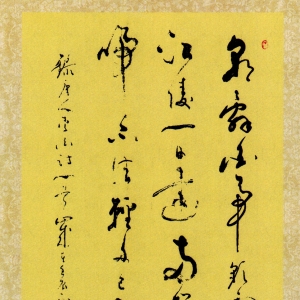 朝辭白帝彩
江陵一日還兩岸
啼不住輕舟已
錄唐人李白詩一首